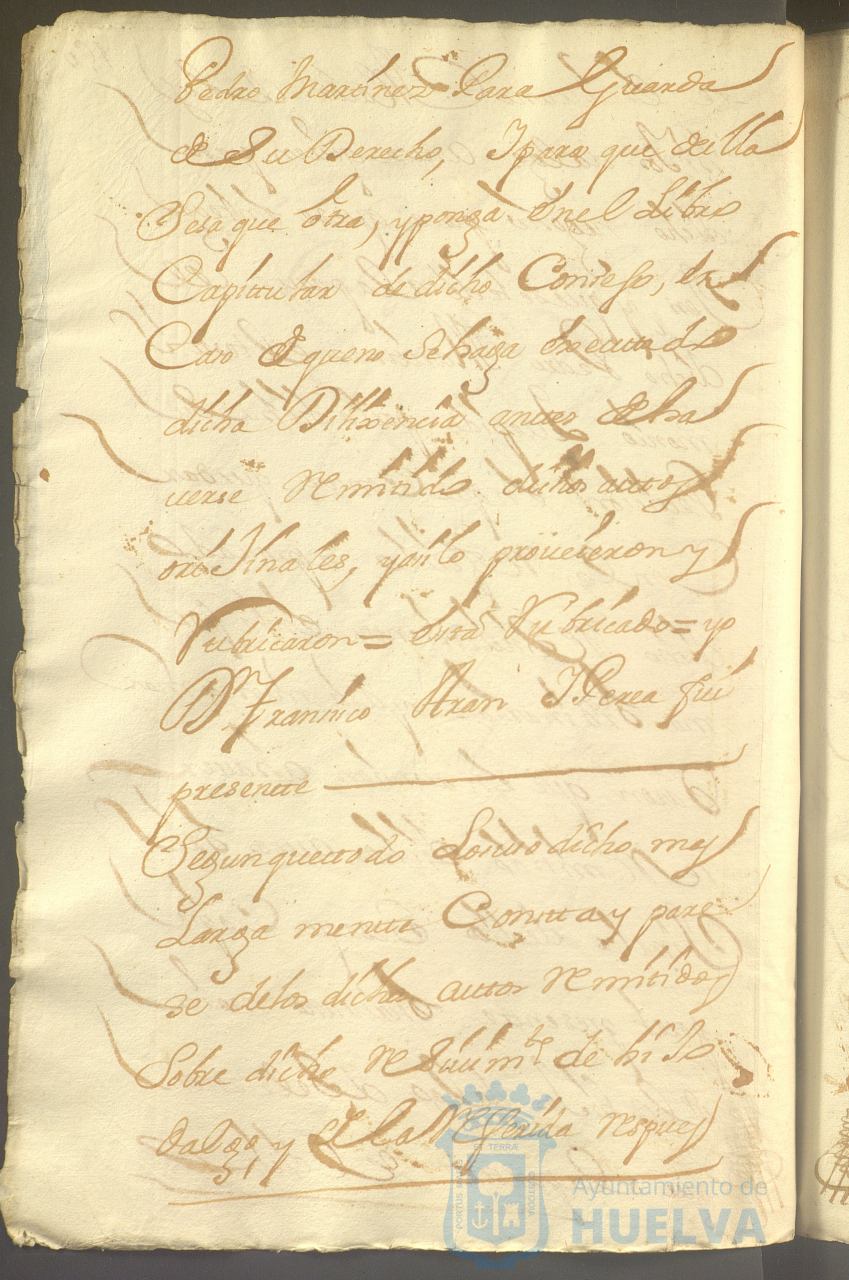 Pedro Martinez Para Guarda
de Su Derecho, Y para que de ella
Se sa que otra, y ponga en el Libro
Capittular de dicho Consejo, en
Caso de que no se haga executado
dicha Dilixencia antes de ha
verse Remitido dichos auttos
oriJinales, y asi lo proveieron y
Rubricaron = esta Rubricado = yo
Dn Francisco Y Perea fui
presentte
Segun que ttodo Lo suso dicho mas
Larga mentte Constta y pare
se de los dichos auttos Remitidos
Sobre dicho Resivimto de hiJo
dalgo, y de la Referida respues
PORTUS MARIS
ET TERRÆ
CUSTODIA
Ayuntamiento de
HUELVA